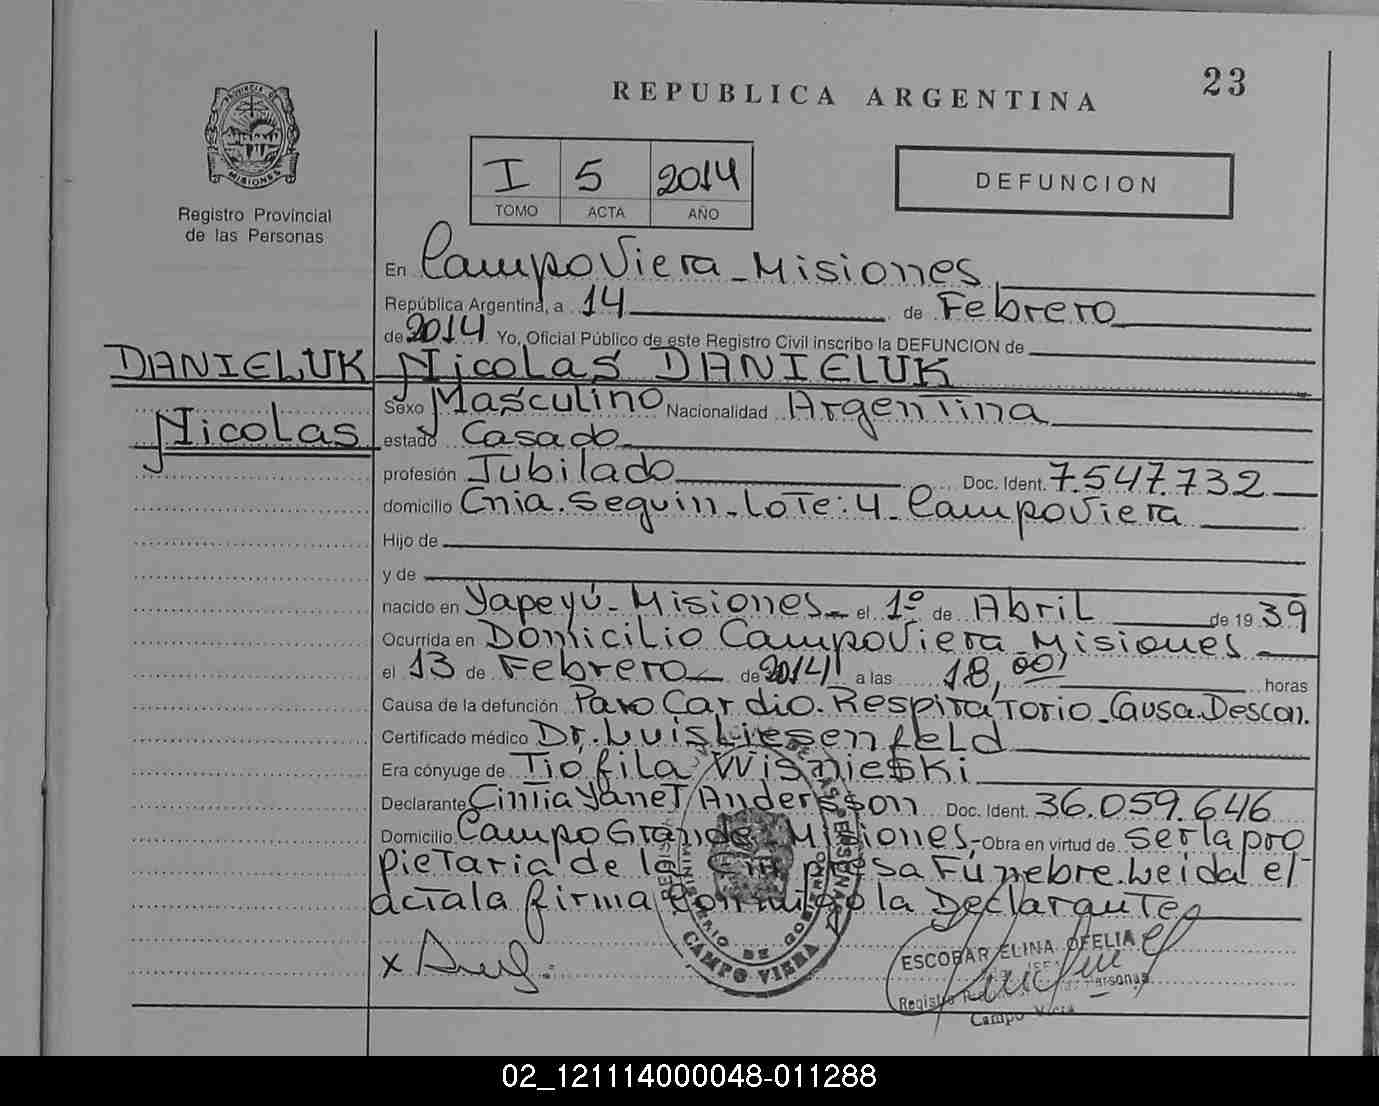 23
REPUBLICA ARGENTINA
PROVINCIA DE
MISIONES
Registro Provincial
de las Personas
I 5 2014
TOMO ACTA AÑO
DEFUNCION
En Campo Viera - Misiones
República Argentina, a 14 de Febrero
de 2014 Yo, Oficial Público de este Registro Civil inscribo la DEFUNCION de
DANIELUK Nicolas DANIELUK
Nicolas
Sexo Masculino Nacionalidad Argentina
estado Casado
profesión Jubilado Doc. Ident. 7.547.732
domicilio Cnia. Seguin - Lote: 4 - Campo Viera
Hijo de
y de
nacido en Yapeyú - Misiones - el 1º de Abril de 19 39
Ocurrida en Domicilio Campo Viera - Misiones
el 13 de Febrero de 2014 a las 18,00 horas
Causa de la defunción Paro Cardio-Respiratorio - Causa. Descon.
Certificado médico Dr. Luis Liesenfeld
Era cónyuge de Tiofila Wisnieski
Declarante Cintia Yanet Andersson Doc. Ident. 36.059.646
Domicilio Campo Grande - Misiones, Obra en virtud de ser la pro
pietaria de la Empresa Fúnebre. Leida el
acta la firma conmigo la Declarante
x
MINISTERIO DE GOBIERNO
CAMPO VIERA
ESCOBAR ELINA OFELIA
Registro Personas
Campo Viera
02_121114000048-011288